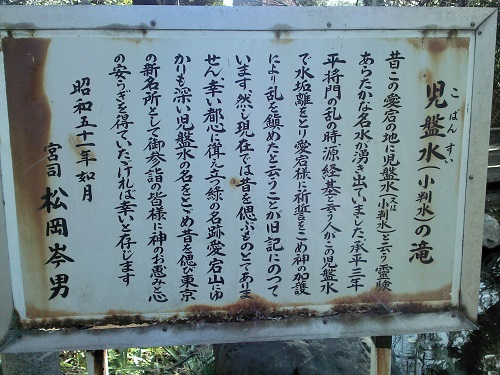 児盤水(小判水)の滝
こばんすい
昔この愛宕の地に児盤水(又は小判水)と云う霊験
あらたかな名水が湧き出ていました承平三年
平将門の乱の時、源経基と云う人がこの児盤水
で水垢離をとり愛宕様に祈誓をこめ神の加護
により乱を鎮めたと云うことが旧記にのって
います、然し現在では昔を偲ぶものとてありま
せん、幸い都心に偉え立つ緑の名跡愛宕山にゆ
かりも深い児盤水の名をとどめ昔を偲び東京
の新名所として御参詣の皆様に神のお恵みと心
の安らぎを得ていたゞければ幸いと存じます
昭和五十一年如月
宮司 松岡岑男